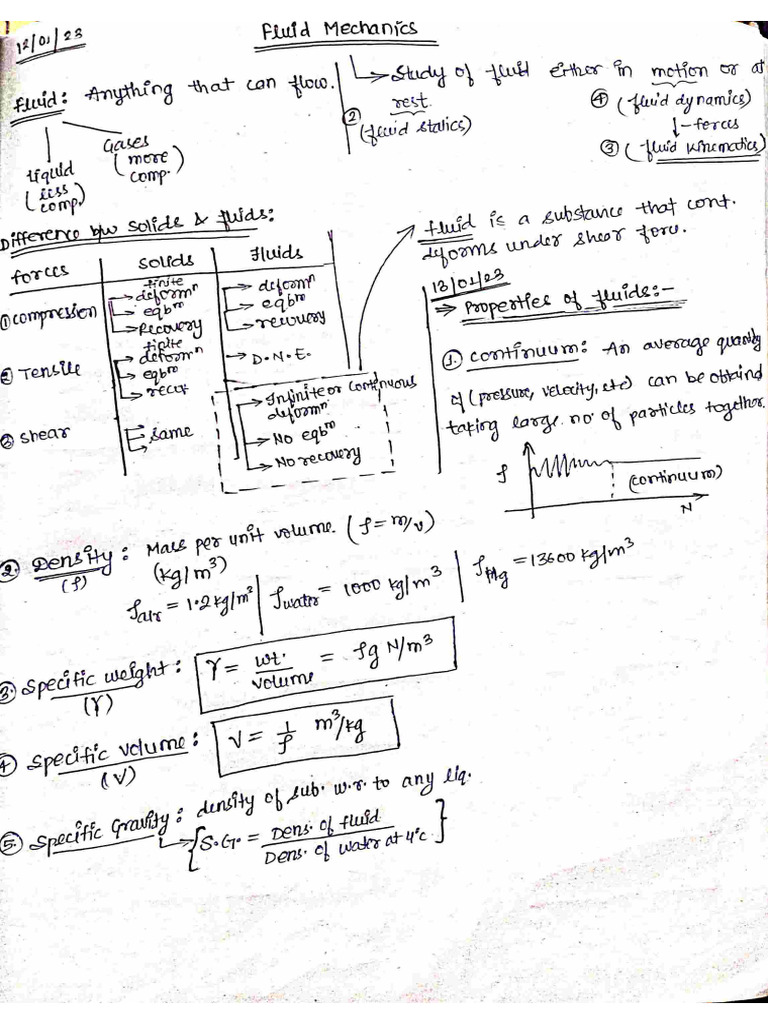 12/01/23
Fluid Mechanics
Fluid: Anything that can flow.
Liquid
(less
comp.)
Gases
(more
comp.)
↳ Study of fluid either in motion or at
rest.
② (fluid statics)
④ (fluid dynamics)
↓-forces
③ (fluid kinematics)
Difference b/w solids & fluids:
forces | solids | fluids
① compression
finite
→ deformⁿ
→ eqbᵐ
→ Recovery
→ deformⁿ
→ eqbᵐ
→ recovery
② Tensile
finite
→ deformⁿ
→ eqbᵐ
→ D.N.E.
③ shear
→ same
→ Infinite or continuous
deformⁿ
→ No eqbᵐ
→ No recovery
fluid is a substance that cont.
deforms under shear force.
13/01/23
⇒ Properties of fluids:-
①. continuum: An average quantity
of (pressure, velocity, etc) can be obtained
taking large no. of particles together.
ρ
(continuum)
N
②. Density: Mass per unit volume. (ρ = m/v)
(ρ)
(kg/m³)
ρair = 1.2 kg/m³ | ρwater = 1000 kg/m³ | ρHg = 13600 kg/m³
③. Specific weight: γ = wt. / volume = ρg N/m³
(γ)
④ Specific volume: V = 1/ρ m³/kg
(V)
⑤. Specific Gravity: density of sub. w.r. to any liq.
↳ {S.G. = Dens. of fluid / Dens. of water at 4°c}